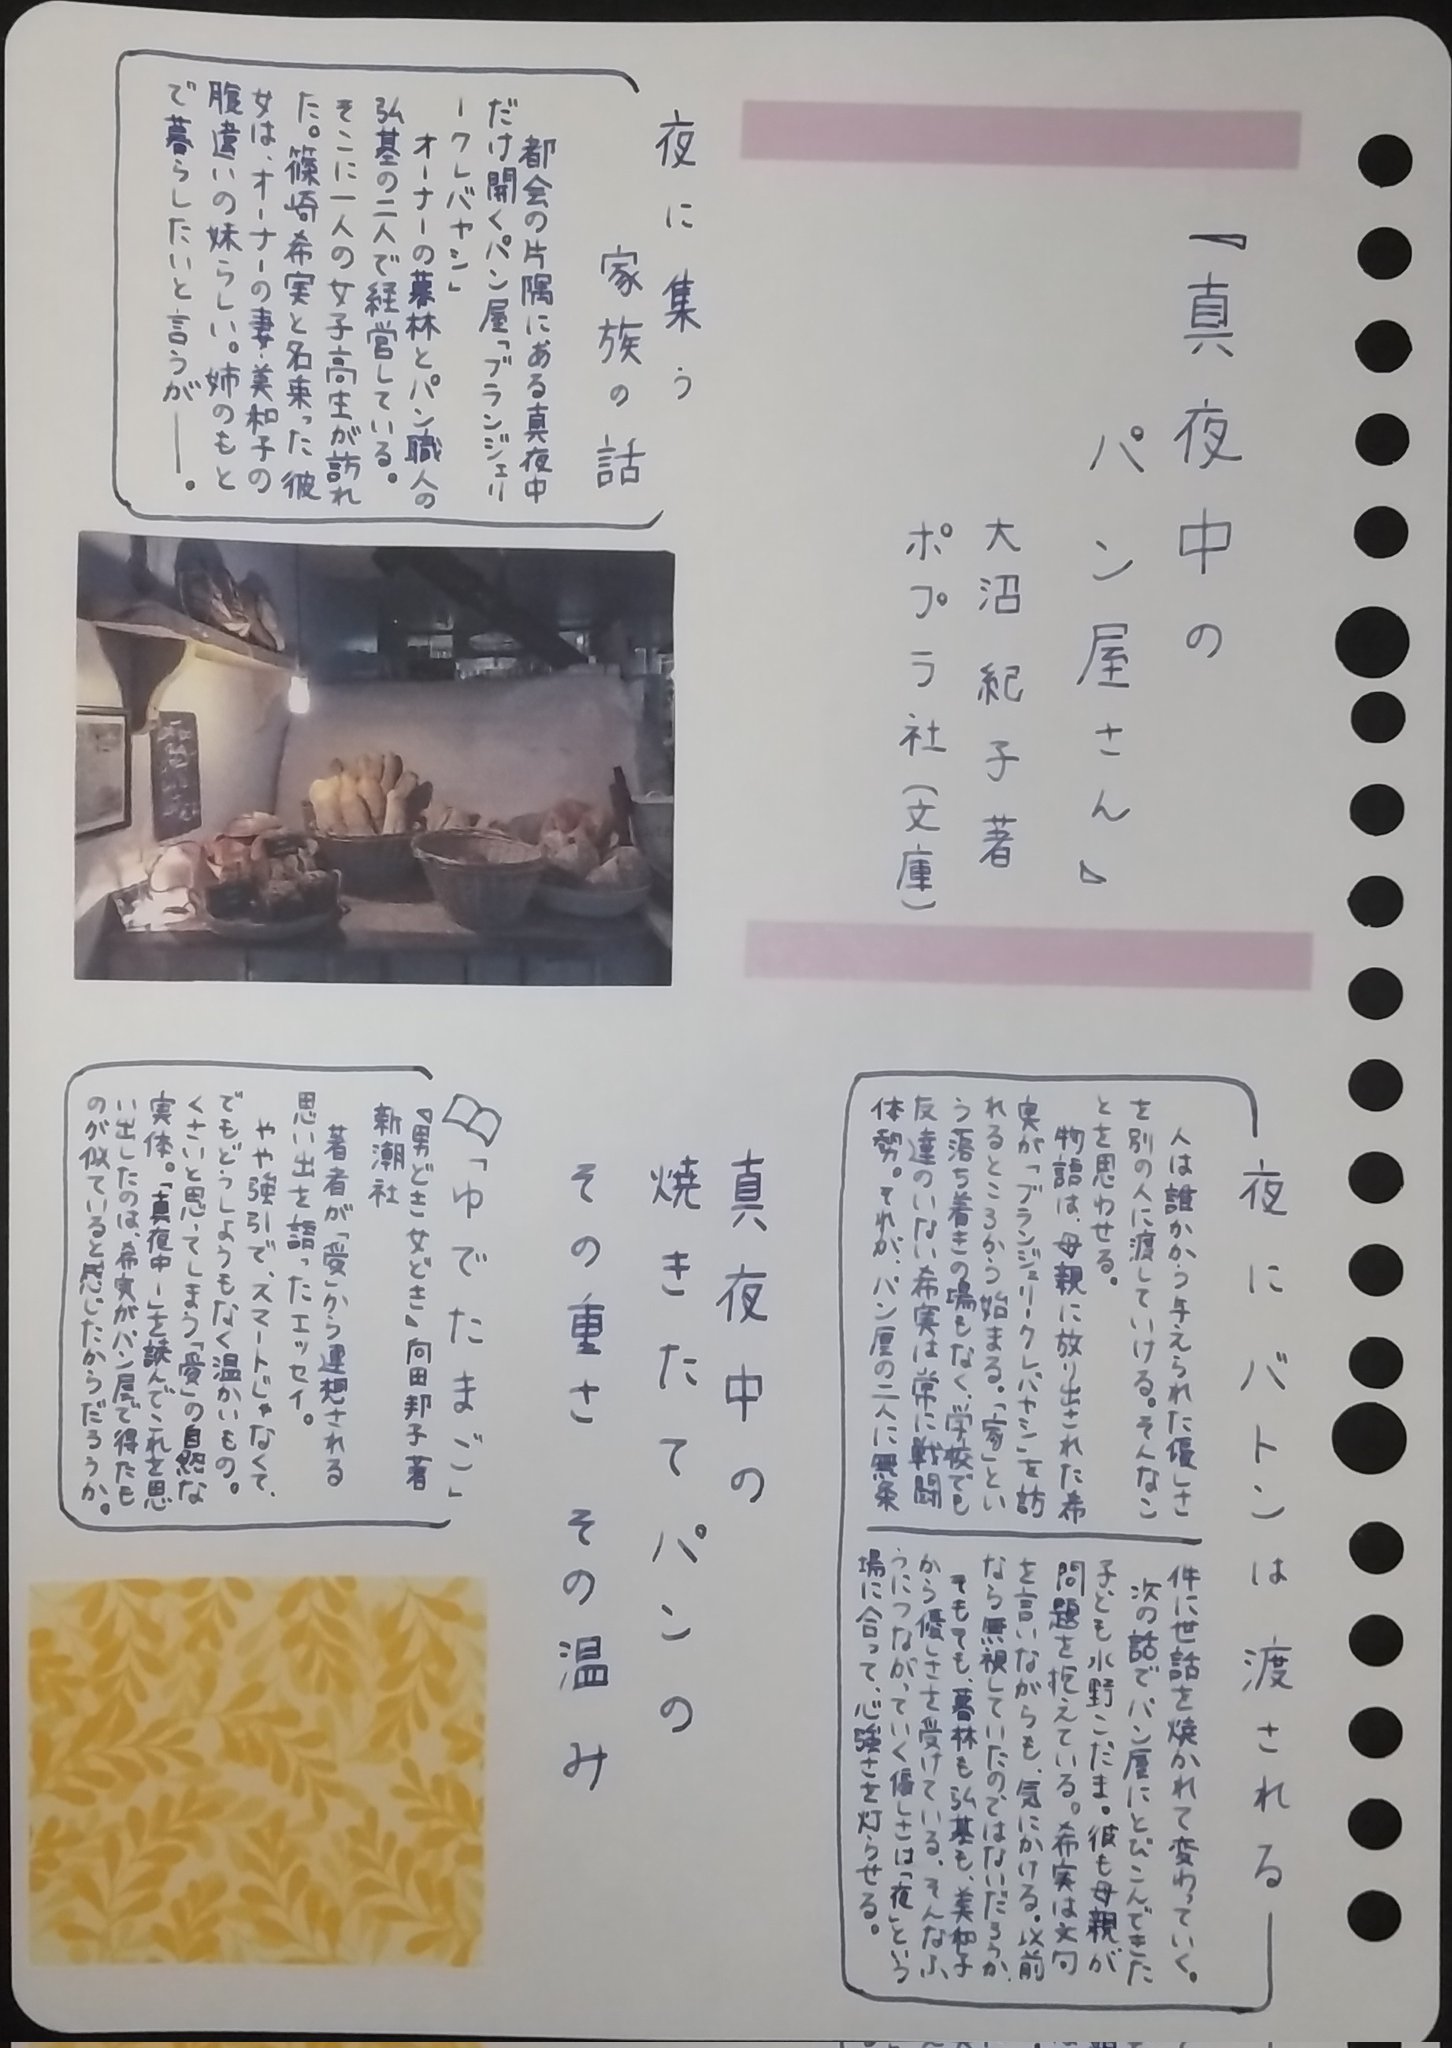 『真夜中の
パン屋さん』
大沼紀子著
ポプラ社(文庫)
夜に集う
家族の話
都会の片隅にある真夜中
だけ開くパン屋「ブランジェリ
ークレバヤシ」
オーナーの暮林とパン職人の
弘基の二人で経営している。
そこに一人の女子高生が訪れ
た。篠崎希実と名乗った彼
女は、オーナーの妻・美和子の
腹違いの妹らしい。姉のもと
で暮らしたいと言うが――。
夜にバトンは渡される
人は誰かから与えられた優しさ
を別の人に渡していける。そんなこ
とを思わせる。
物語は、母親に放り出された希
実が「ブランジェリークレバヤシ」を訪
れるところから始まる。「家」とい
う落ち着きの場もなく、学校でも
友達のいない希実は常に戦闘
体勢。それが、パン屋の二人に無条
件に世話を焼かれて変わっていく。
次の話でパン屋にとびこんできた
子ども水野こだま。彼も母親が
問題を抱えている。希実は文句
を言いながらも、気にかける。以前
なら無視していたのではないだろうか。
そもそも、暮林も弘基も、美和子
から優しさを受けている。そんなふ
うにつながっていく優しさは「夜」という
場に合って、心強さを灯らせる。
真夜中の
焼きたてパンの
その重さ その温み
「ゆでたまご」
『男どき女どき』向田邦子著
新潮社
著者が「愛」から連想される
思い出を語ったエッセイ。
やや強引で、スマートじゃなくて、
でもどうしようもなく温かいもの。
くさいと思ってしまう「愛」の自然な
実体。「真夜中ー」を読んでこれを思
い出したのは、希実がパン屋で得たも
のが似ていると感じたからだろうか。